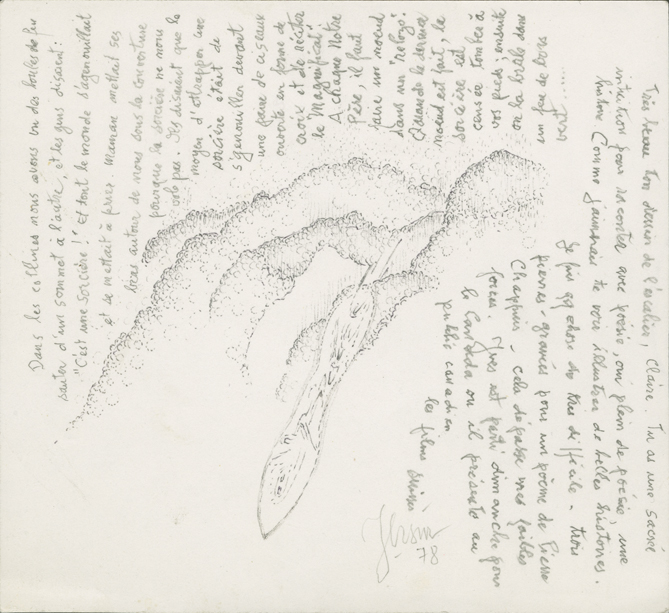 Dans les collines nous avons vu des boules de feu
sauter d'un sommet à l'autre, et les gens disent:
"C'est une sorcière!" et tout le monde s'agenouillait
et se mettait à prier. Maman mettait ses
bras autour de nous sous la couverture
pourque la sorcière ne nous
vole pas. Ils disaient que le
moyen d'attrapper une
sorcière était de
s'genouiller devant
une paire de ciseaux
ouverte en forme de
croix et de réciter
le "Magnificat".
A chaque Notre
Père, il faut
faire un noeud
dans un "rebozo".
Quand le dernier
noeud est fait, la
sorcière est
censée tomber à
vos pieds; ensuite
on la brûle dans
un feu de bois
vert.....
Très beau ton dessin de l'escalier, Claire. Tu as une sacré
intuition pour raconter avec poésie, oui plein de poésie, une
histoire. Comme j'aimerais te voir illustrer de belles histoires.
Je fais qq chose de très difficile - trois
pierres - gravées pour un poème de Pierre
Chappuis - cela dépasse mes faibles
forces. Yves est parti dimanche pour
le Canada où il présente au
public canadien
les films suisses
78